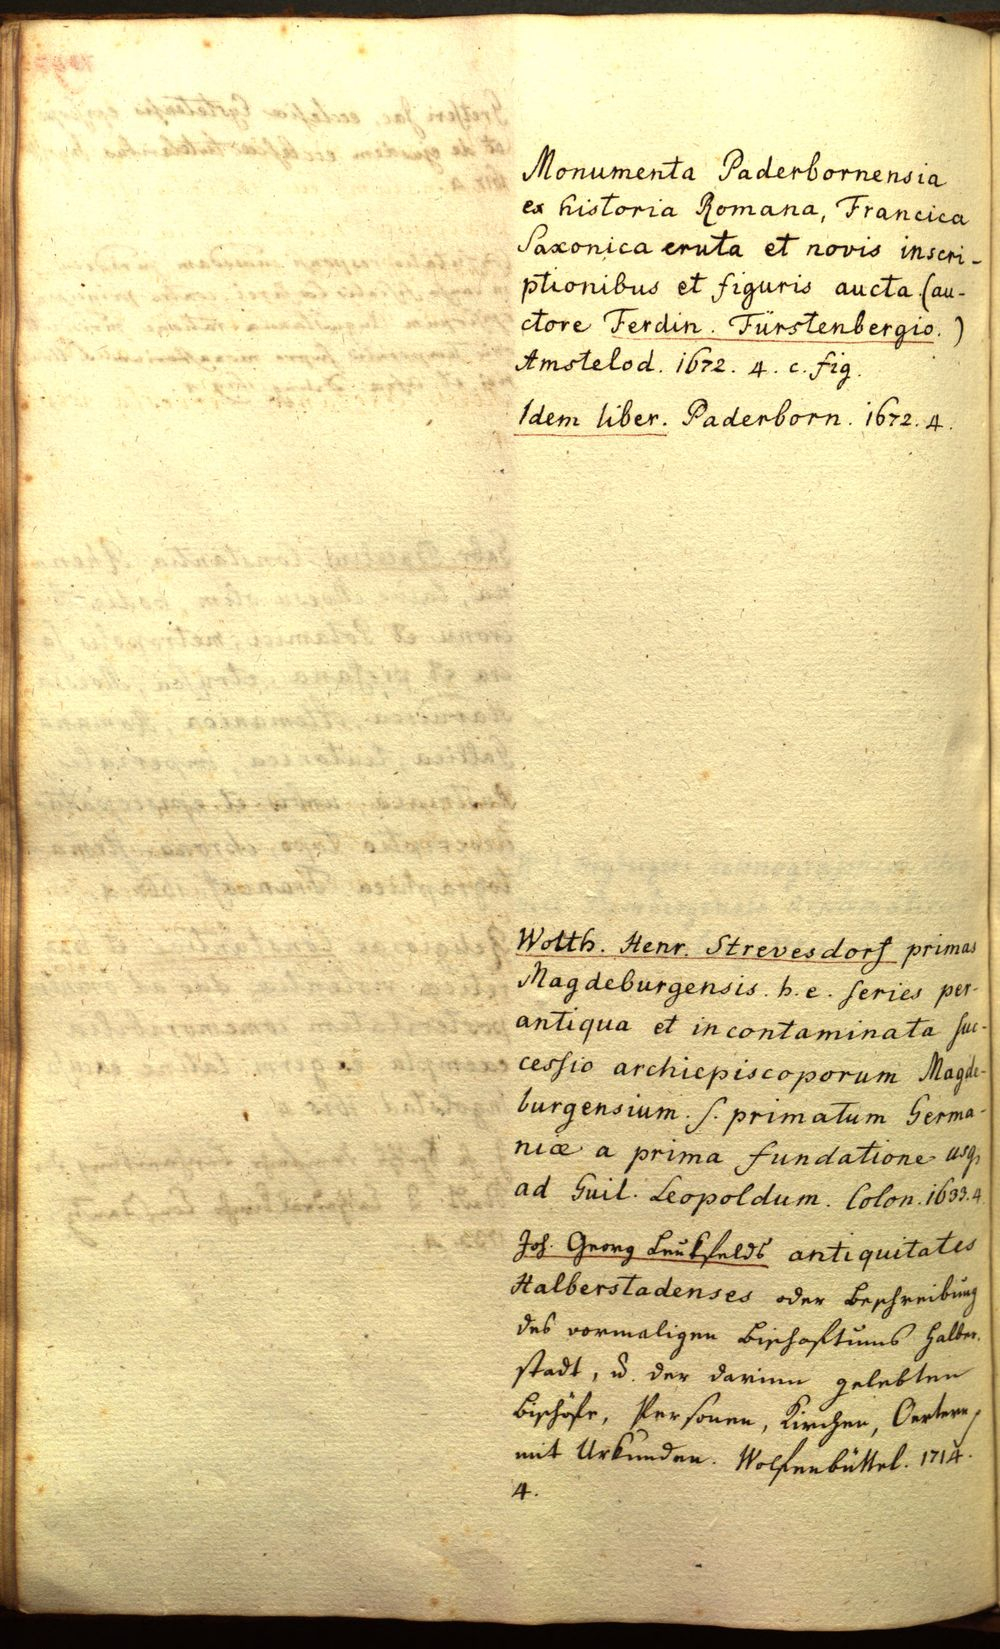 Monumenta Paderbornensia
ex historia Romana, Francica
Saxonica eruta et novis inscri-
ptionibus et figuris aucta (au-
ctore Ferdin. Fürstenbergio.)
Amstelod. 1672. 4. c. fig.
Idem liber. Paderborn. 1672. 4.
Wolth. Henr. Strevesdorf primas
Magdeburgensis. h. e. series per-
antiqua et incontaminata suc-
cessio archiepiscoporum Magde-
burgensium. s. primatum Germa-
niæ a prima fundatione usq
ad Guil. Leopoldum. Colon. 1633. 4
Joh. Georg Leukfelds antiquitates
Halberstadenses oder Beschreibung
des vormaligen Bischoftums Halber-
stadt, u. der darinn gelebten
Bischöfe, Personen, Kirchen, Oertern,
mit Urkunden. Wolfenbüttel. 1714.
4.